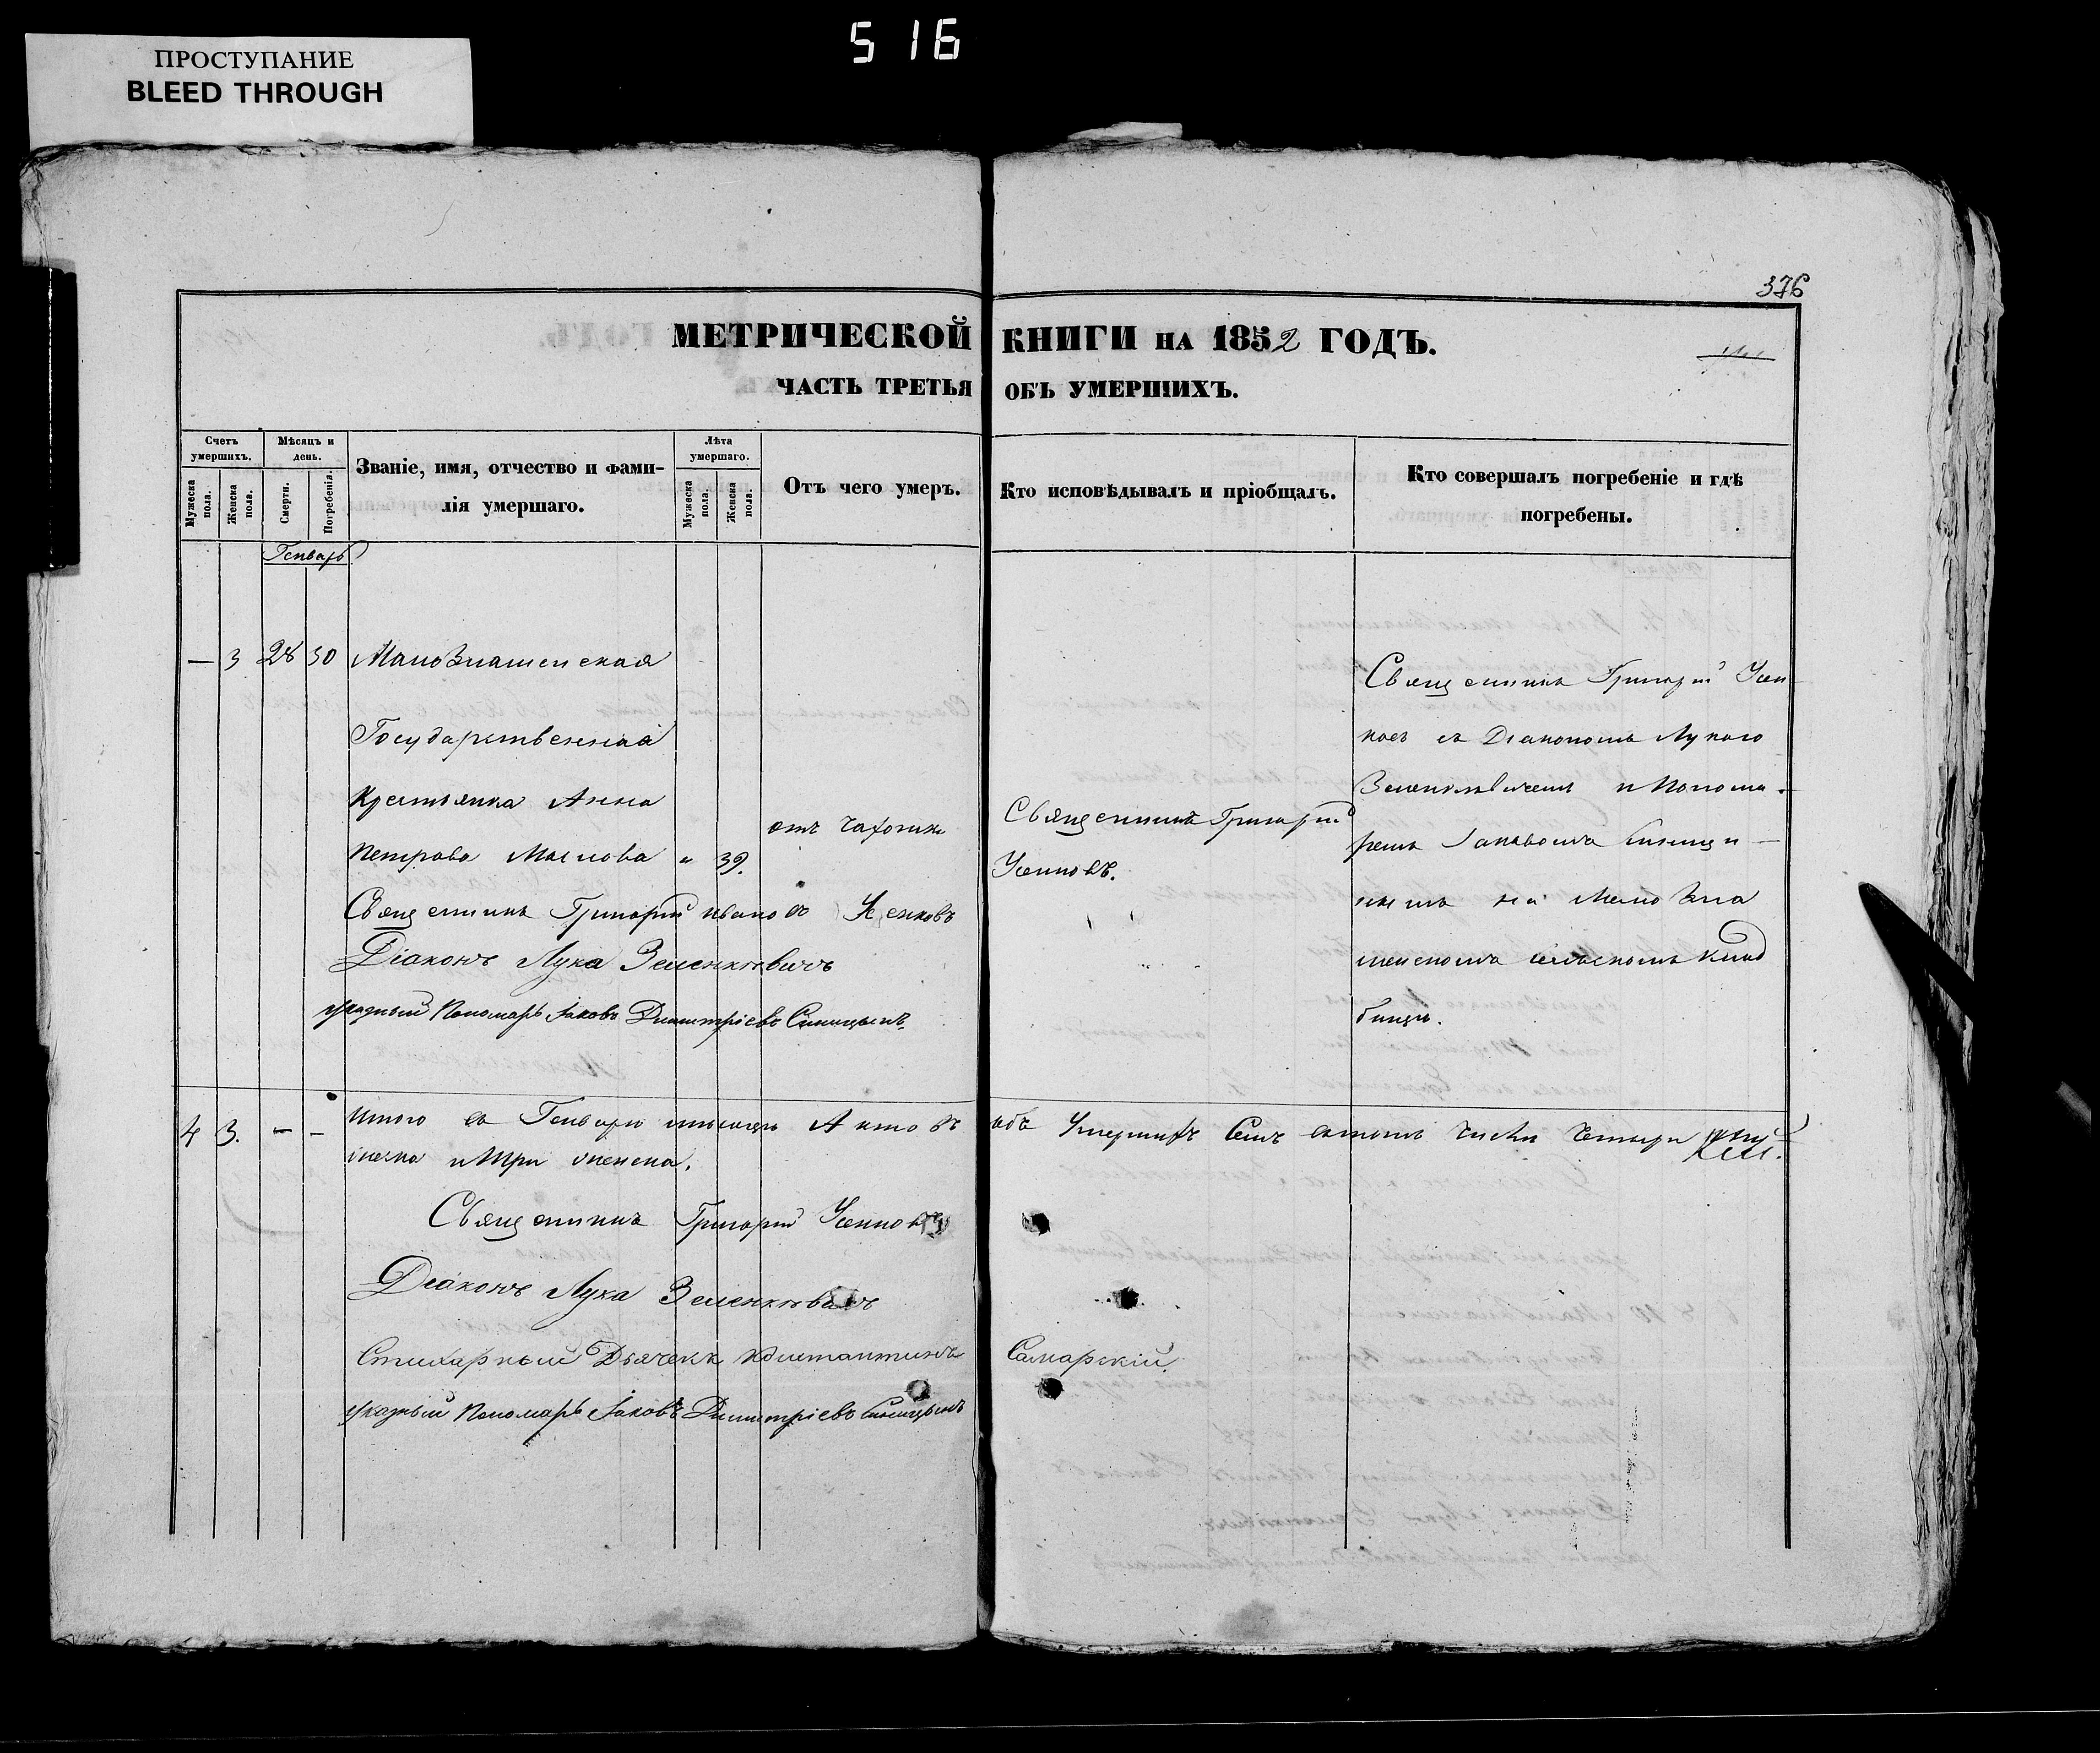 516
ПРОСТУПАНИЕ
BLEED THROUGH
376
МЕТРИЧЕСКОЙ КНИГИ НА 1852 ГОДЪ.
ЧАСТЬ ТРЕТЬЯ ОБЪ УМЕРШИХЪ.
Счетъ умершихъ.
Мужеска пола.
Женска пола.
Мѣсяцъ и день.
Смерти.
Погребенія.
Званіе, имя, отчество и фами-
лія умершаго.
Лѣта умершаго.
Мужеска пола.
Женска пола.
Отъ чего умеръ.
Кто исповѣдывалъ и пріобщалъ.
Кто совершалъ погребеніе и гдѣ
погребены.
Генварь
— 3 28 30 Малознаменская
Государственная
Крестьянка Анна
Петрова Маслова " 39.
отъ чахотки
Священникъ Григорій
Усенковъ.
Священникъ Григорій Усен
ковъ съ Діакономъ Лукою
Зеленкѣвичемъ и Понома-
ремъ Іаковомъ Синици—
нымъ на Мало Зна
менскомъ сельскомъ клад
бищѣ.
Священникъ Григорій Ивановъ Усенковъ
Діаконъ Лука Зеленкѣвичъ
указный Пономарь Іаковъ Димитріевъ Синицынъ
4 3. — — Итого въ Генварѣ мѣсяцѣ Актовъ объ Умершихъ Семь въ томъ числѣ четыри муж
и три женска.
Священникъ Григорій Усенковъ
Діаконъ Лука Зеленкѣвичъ
Стихарный Дьячекъ Константинъ Самарскій.
указный Пономарь Іаковъ Димитріевъ Синицынъ